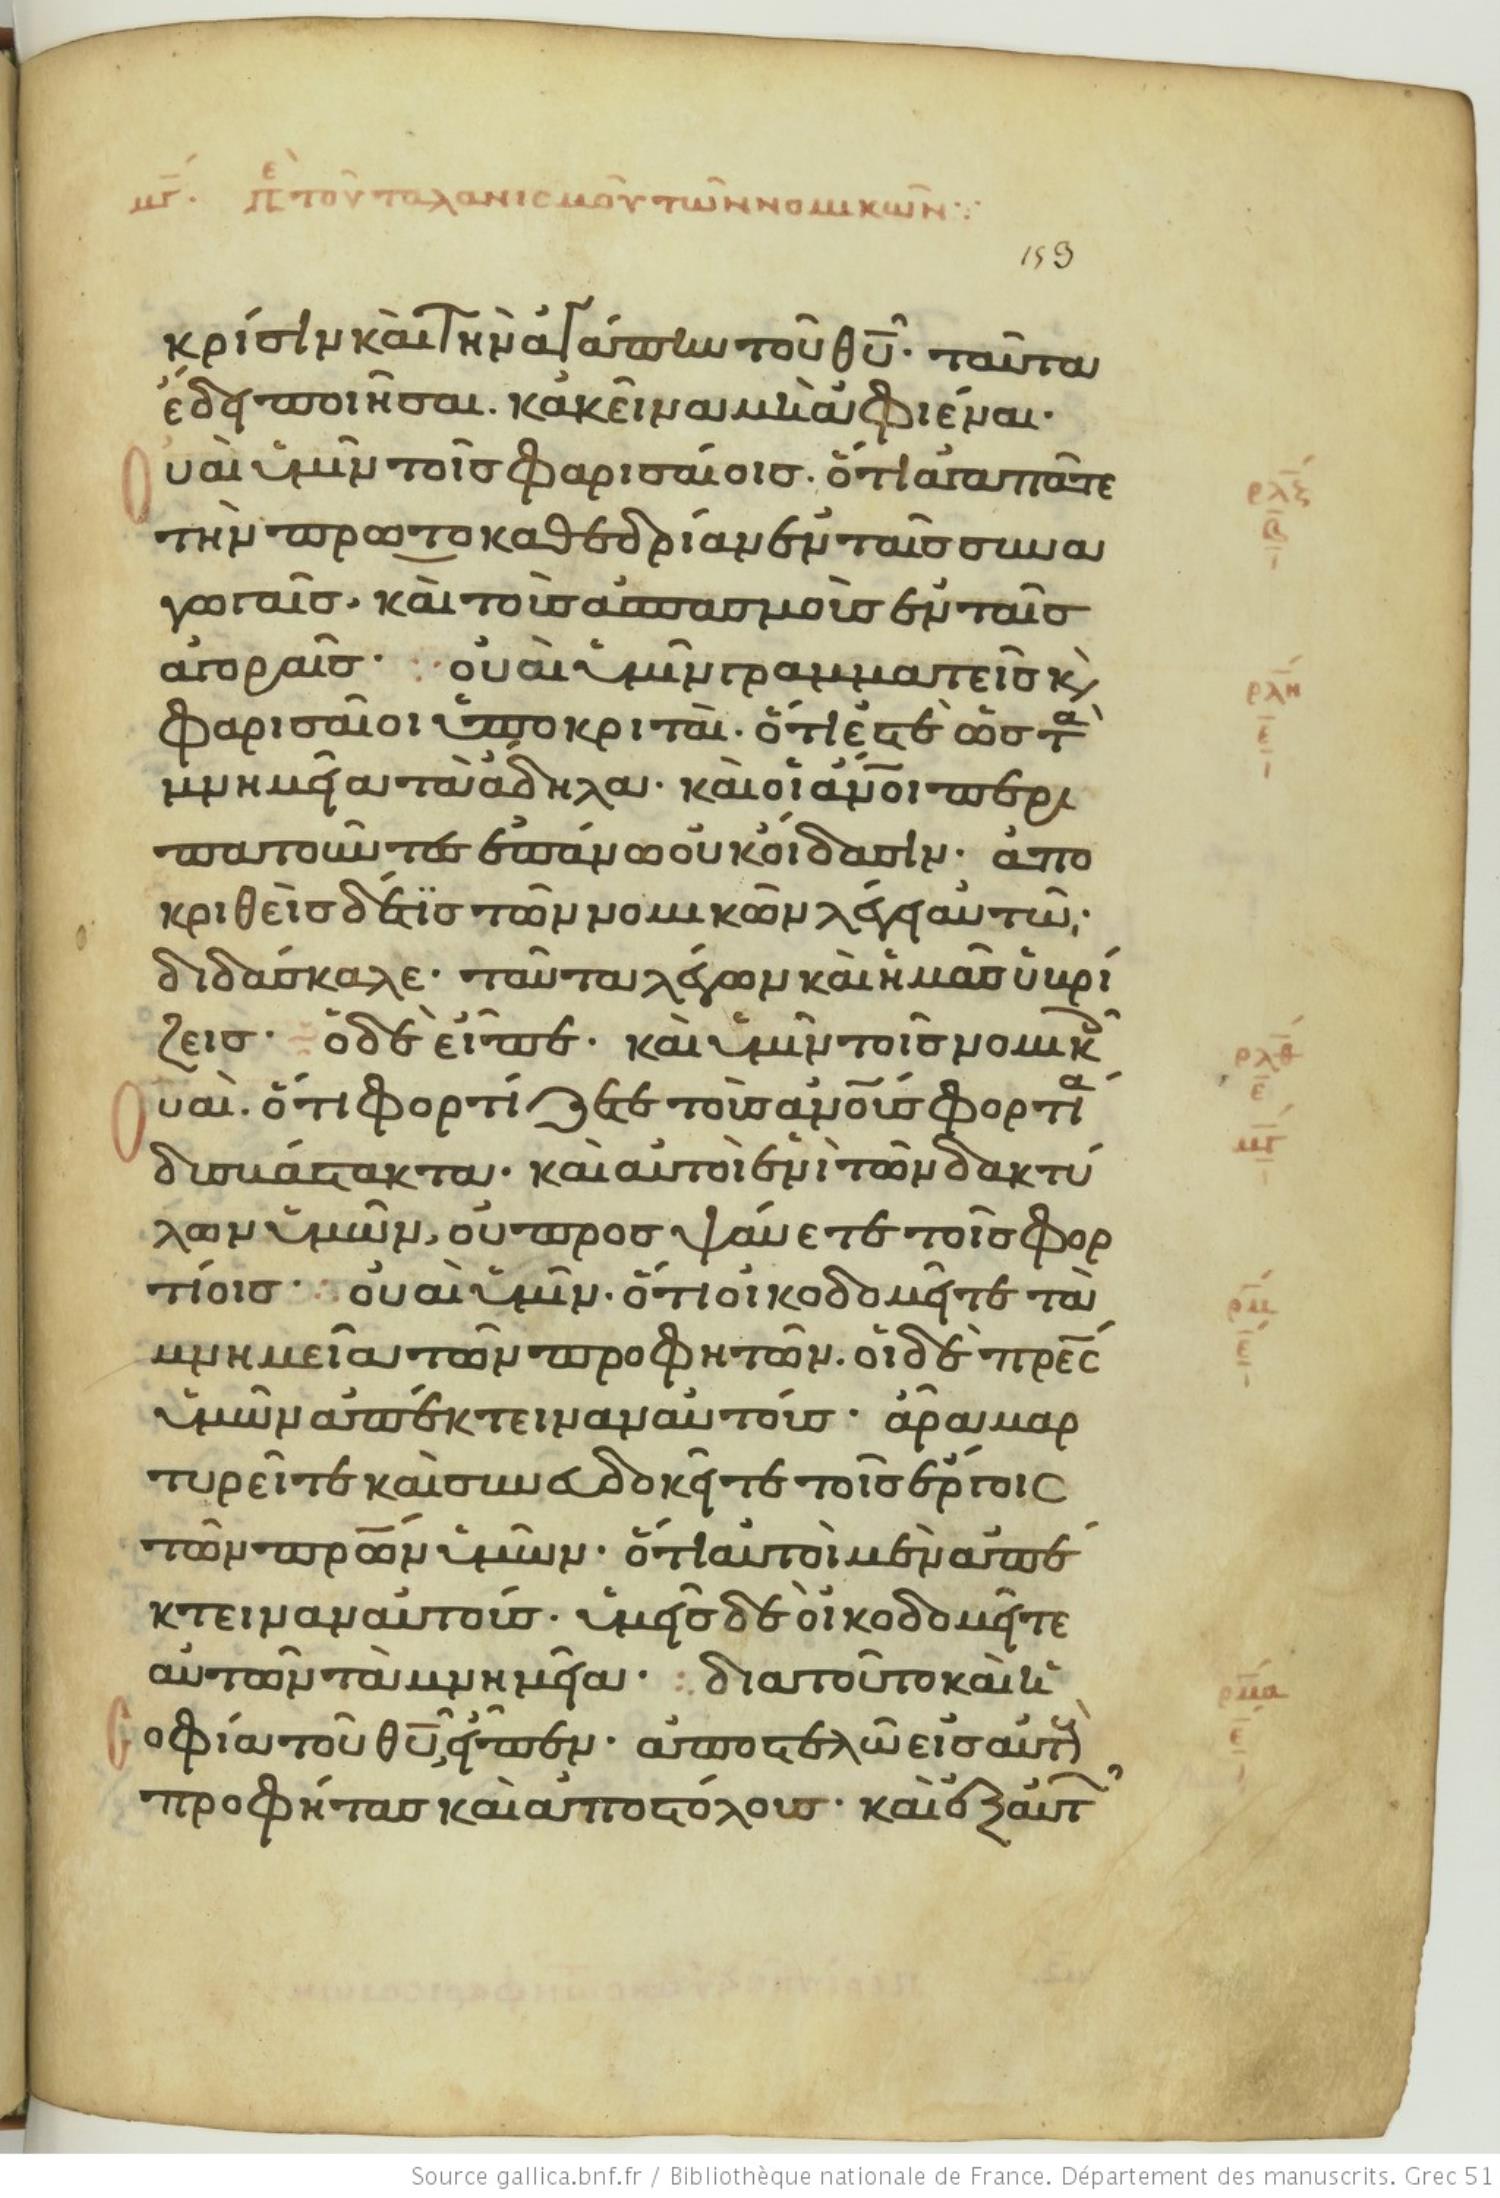 μγ. πε τοῦ ταλανισμοῦ τῶν νομικῶν
159
κρίσιν καὶ τὴν ἀγάπην τοῦ θῦ· ταῦτα
ἔδει ποιῆσαι. κἀκεῖνα μὴ ἀφιέναι·
Οὐαὶ ὑμῖν τοῖς φαρισαίοις. ὅτι ἀγαπᾶτε
τὴν πρωτοκαθεδρίαν ἐν ταῖς συνα
γωγαῖς, καὶ τοὺς ἀσπασμοὺς ἐν ταῖς
ἀγοραῖς· οὐαὶ ὑμῖν γραμματεῖς κ
φαρισαῖοι ὑποκριταὶ. ὅτι ἐστὲ ὡς τὰ
μνημεῖα τὰ ἄδηλα. καὶ οἱ ἄνοι περι
πατοῦντες ἐπάνω οὐκ οἴδασιν. ἀπο
κριθεὶς δέ τϊς τῶν νομικῶν λέγει αὐτῶ·
διδάσκαλε. ταῦτα λέγων καὶ ἡμᾶς ὑβρί
ζεις. ὁ δὲ εἶπε. καὶ ὑμῖν τοῖς νομικ
Οὐαὶ. ὅτι φορτίζετε τοὺς ἀνους φορτία
δυσβάστακτα. καὶ αὐτοὶ ἑνὶ τῶν δακτύ
λων ὑμῶν, οὐ προσψάυετε τοῖς φορ
τίοις· οὐαὶ ὑμῖν. ὅτι οἰκοδομεῖτε τὰ
μνημεῖα τῶν προφητῶν. οἱ δὲ πρες
ὑμῶν ἀπέκτειναν αὐτούς. ἄρα μαρ
τυρεῖτε καὶ συνευδοκεῖτε τοῖς ἔργοις
τῶν πρων ὑμῶν. ὅτι αὐτοὶ μὲν ἀπέ
κτειναν αὐτούς. ὑμεῖς δὲ οἰκοδομεῖτε
αὐτῶν τὰ μνημεῖα· διατοῦτο καὶ ἡ
Σοφία τοῦ θῦ, εἶπεν. ἀποστελῶ εἰς αὐτ
προφήτας καὶ ἀποστόλους. καὶ ἐξ αὐτ
ρλη
ε
ρλθ
ε
μγ
ρμ
ε
ρμα
ε
Source gallica.bnf.fr / Bibliothèque nationale de France. Département des manuscrits. Grec 51